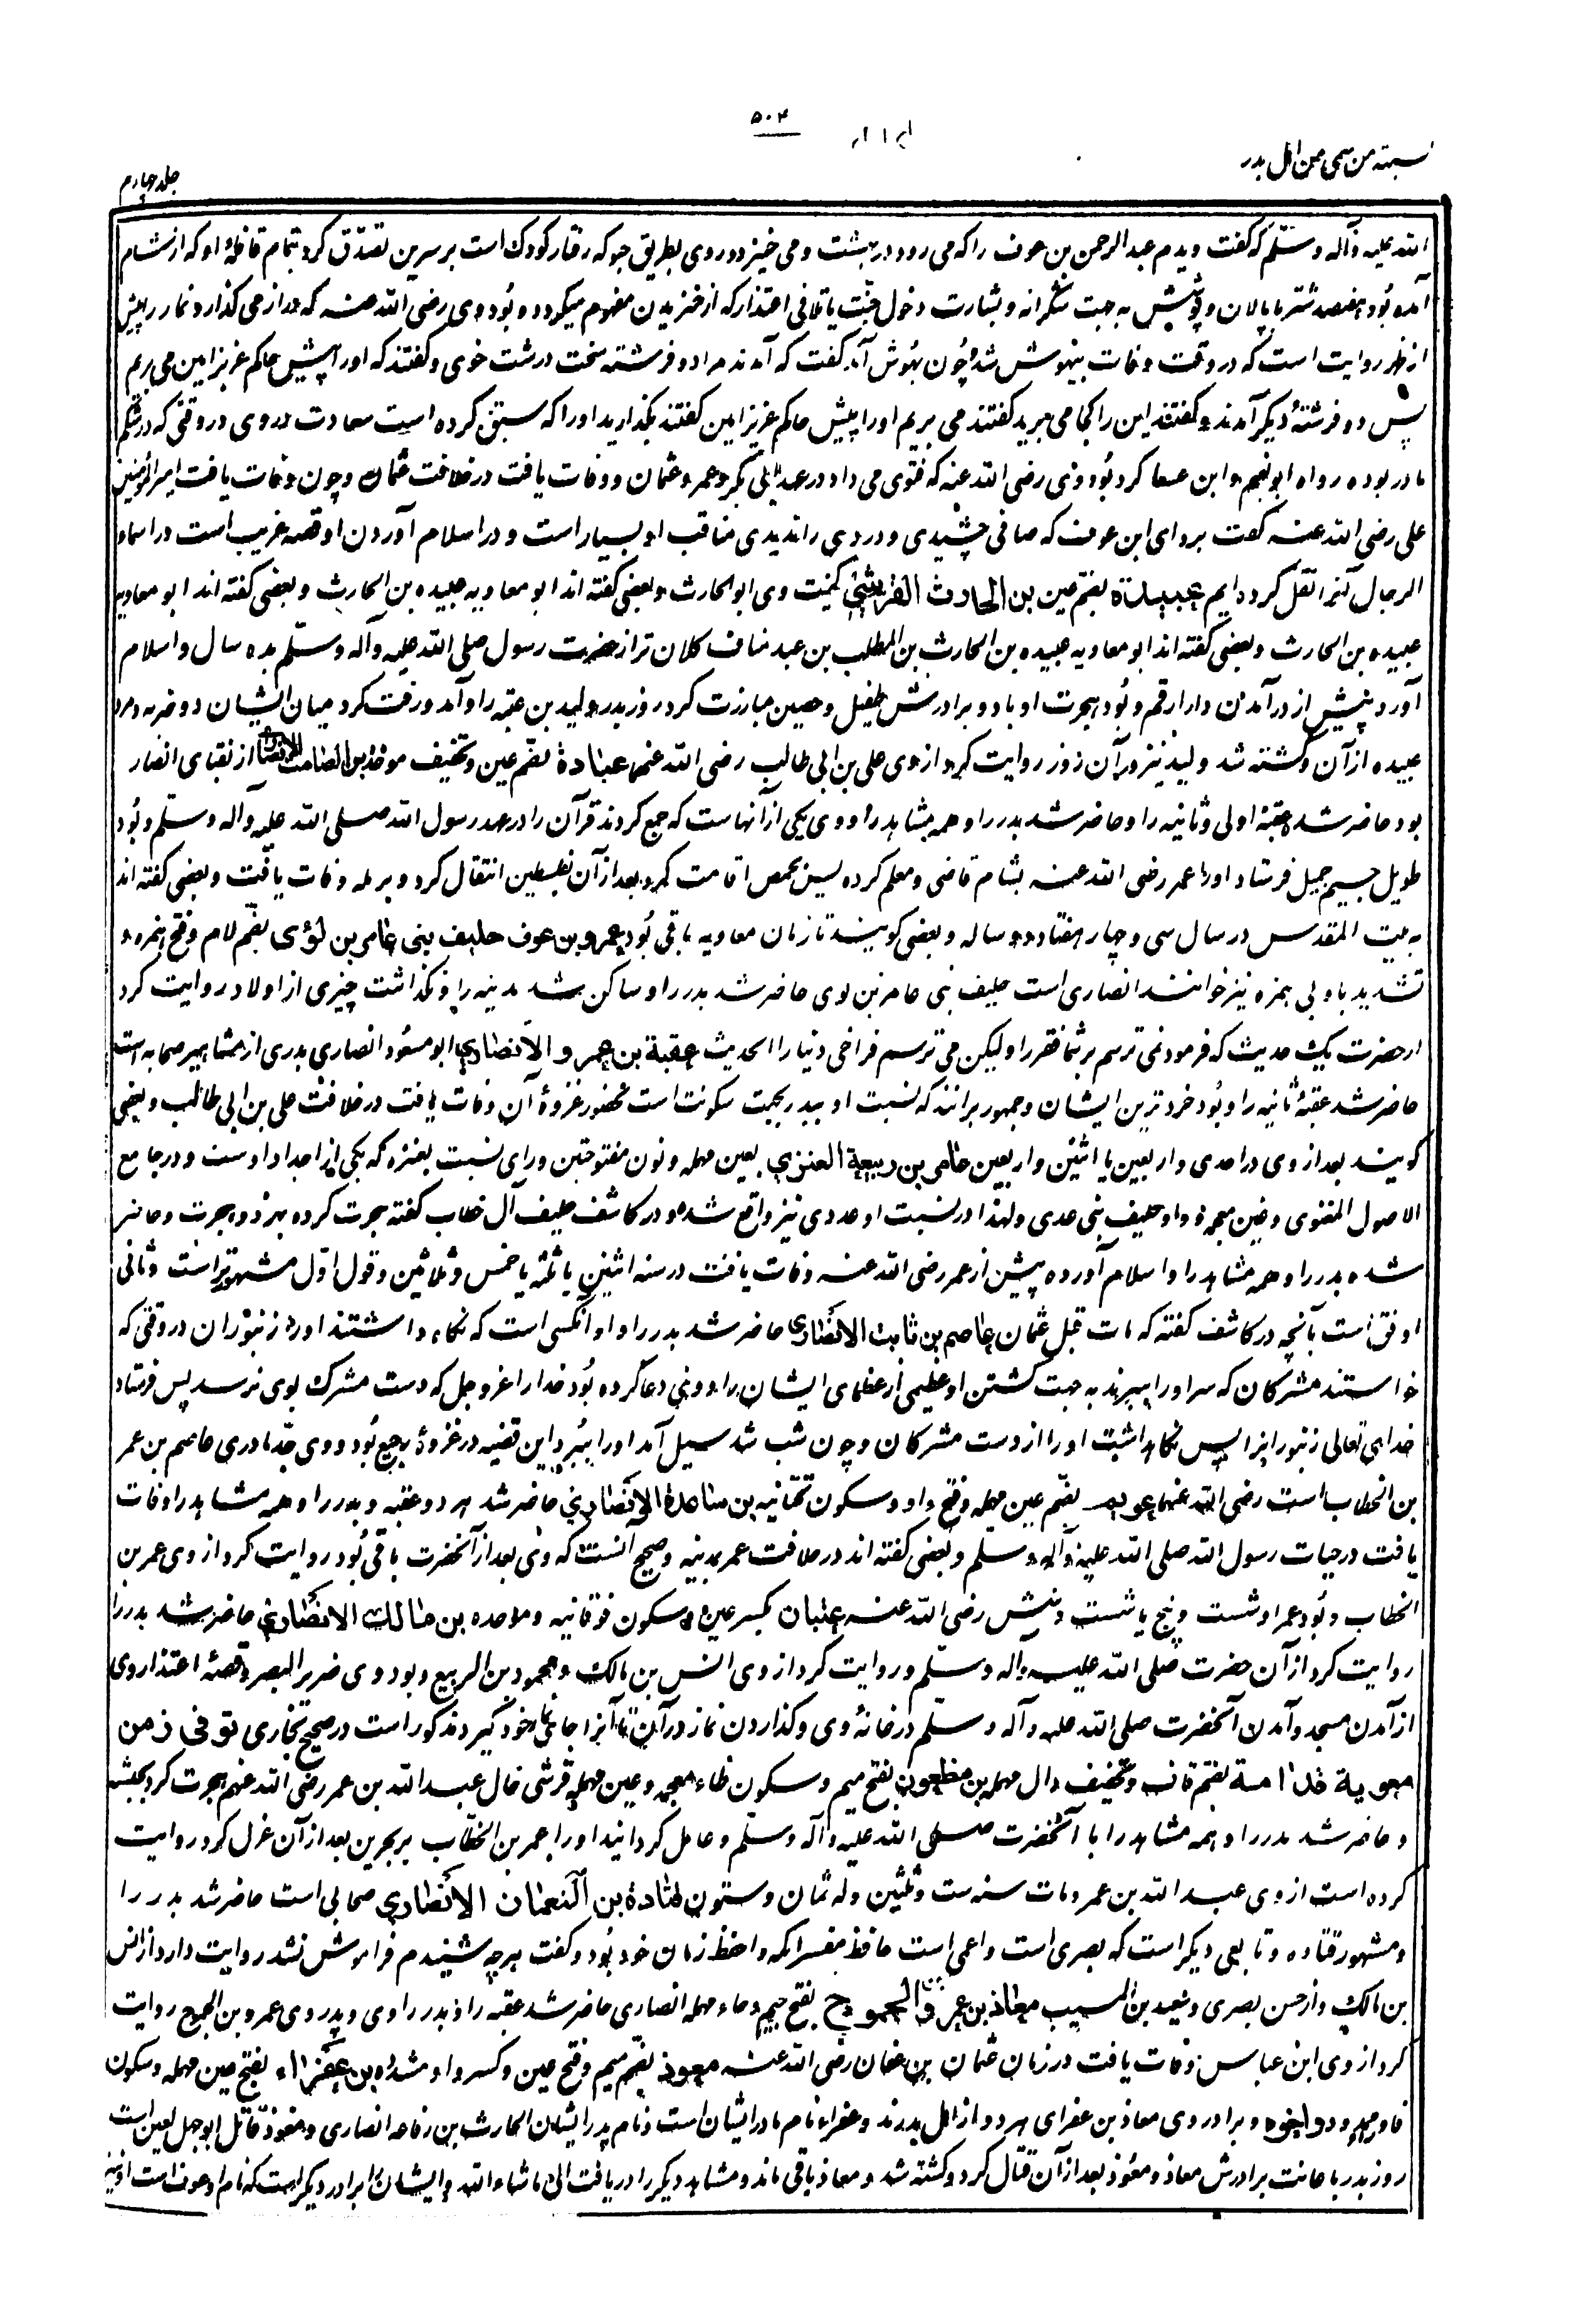 ۵۰۴
تسمیة من سمی من اهل بدر
جلد چهارم
الله علیه وآله وسلّم که گفت دیدم عبد الرحمن بن عوف را که می رود در بهشت و می خیزد در وی بطریق حبو که رفتار کودک است بر سرین تصدّق کرد بتمام قافلهٔ او که از شام
آمده بُود هفصد شتر با پالان و پوشش به جهت شکرانه و بشارت دخول جنّت یا تلافی اعتذار که از خزیدن مفهوم میگردد و بُود وی رضی الله عنه که دراز می گذارد نماز را پیش
از ظهر روایت است که در وقت وفات بیهوش شد و چُون بهُوش آمد گفت که آمدند مرا دو فرشته سخت درشت خوی و گفتند که او را پیش حاکم عزیز امین می بریم
پس دو فرشتهٔ دیگر آمدند و گفتند این را کجا می برید گفتند می بریم او را پیش حاکم عزیز امین گفتند بگذارید او را که سبقت کرده است سعادت در وی در وقتی که در شکم
مادر بوده رواه ابو نعیم و ابن عساکر و بُود وی رضی الله عنه که فتوی می داد در عهد ابی بکر و عمر و عثمان و وفات یافت در خلافت عثمان و چون وفات یافت امیر المؤمنین
علی رضی الله عنه گفت برو ای ابن عوف که صافی چشیدی و دردی را ندیدی مناقب او بسیار است و در اسلام آوردن او قصه غریب است در اسماء
الرجال آنرا نقل کرده ایم عبیدة بضم عین بن الحارث القرشی کنیت وی ابو الحارث و بعضی گفته اند ابو معاویه عبیده بن الحارث و بعضی گفته اند ابو معاویه
عبیده بن الحارث و بعضی گفته اند ابو معاویه عبیده بن الحارث بن المطلب بن عبد مناف کلان تر از حضرت رسول صلی الله علیه وآله وسلّم بده سال و اسلام
آورد پیش از در آمدن دار ارقم و بُود هجرت او با دو برادرش طفیل و حصین مبارزت کرد روز بدر ولید بن عتبه را و آمد و رفت کرد میان ایشان دو ضربه و مرد
عبیده از آن و کشته شد ولید نیز در آن روز روایت کرد از وی علی بن ابی طالب رضی الله عنهما عبادة بضم عین و تخفیف موحّده بن الصامت الانصاری از نقبای انصار
بود حاضر شد عقبهٔ اولی و ثانیه را و حاضر شد بدر را و همه مشاهد را و وی یکی از آنهاست که جمع کردند قرآن را در عهد رسول الله صلی الله علیه وآله وسلّم و بُود
طویل جسیم جمیل فرستاد او را عمر رضی الله عنه بشام قاضی و معلم کرده پس بحمص اقامت کرد بعد از آن بفلسطین انتقال کرد و برمله وفات یافت و بعضی گفته اند
به بیت المقدس در سال سی و چهار هفتاد و دو ساله و بعضی گویند تا زمان معاویه باقی بُود عمرو بن عوف حلیف بنی عامر بن لؤی بضم لام و فتح همزه و
تشدید یا و بی همزه نیز خوانند انصاری است حلیف بنی عامر بن لوی حاضر شد بدر را و ساکن شد مدینه را و نگذاشت چیزی از اولاد روایت کرد
از حضرت یک حدیث که فرمود نمی ترسم بر شما فقر را ولیکن می ترسم فراخی دنیا را الحدیث عقبة بن عمرو الانصاری ابو مسعُود انصاری بدری از مشاهیر صحابه است
حاضر شد عقبهٔ ثانیه را و بُود خرد ترین ایشان و جمهور بر آنند که نسبت او ببدر بجهت سکونت است نه حضور غزوهٔ آن وفات یافت در خلافت علی بن ابی طالب و بعضی
گویند بعد از وی در احدی و اربعین یا اثنین و اربعین عامر بن ربیعة العنزی بعین مهمله و نون مفتوحتین و زای نسبت بعنزه که یکی از اجداد اوست و در جامع
الاصول الغنوی و غین معجمه و واو حلیف بنی عدی و لهذا در نسبت او عددی نیز واقع شده و در کاشف حلیف آل خطاب گفته هجرت کرده بهر دو هجرت و حاضر
شده بدر را و همه مشاهد را و اسلام آورده پیش از عمر رضی الله عنه وفات یافت در سنه اثنین یا ثلثه یا خمس و ثلاثین و قول اوّل مشهورتر است و ثانی
اوفق است بآنچه در کاشف گفته که مات قبل عثمان عاصم بن ثابت الانصاری حاضر شد بدر را و او آنکسی است که نگاه داشتند او را زنبوران در وقتی که
خواستند مشرکان که سر او را ببرند به جهت کشتن او عظیمی از عظمای ایشان را و وی دعا کرده بُود خدا را عزوجل که دست مشرک بوی نرسد پس فرستاد
خدای تعالی زنبور انرا پس نگاهداشت او را از دست مشرکان و چون شب شد سیل آمد او را ببُرد و این قضیه در غزوهٔ رجیع بُود و وی جدّ مادری عاصم بن عمر
بن الخطاب است رضی الله عنهما عویم بضم عین مهمله و فتح واو و سکون تحتانیه بن ساعدة الانصاری حاضر شد هر دو عقبه و بدر را و همه مشاهد را وفات
یافت در حیات رسول الله صلی الله علیه وآله وسلم و بعضی گفته اند در خلافت عمر بمدینه و صحیح آنست که وی بعد از آنحضرت باقی بُود روایت کرد از وی عمر بن
الخطاب و بُود عمر او شصت و پنج یا شصت و شش رضی الله عنه عتبان بکسر عین و سکون فوقانیه و موحده بن مالک الانصاری حاضر شد بدر را
روایت کرد از آن حضرت صلی الله علیه وآله وسلّم و روایت کرد از وی انس بن مالک و محمود بن الربیع و بود وی ضریر البصر و قصهٔ اعتذار وی
از آمدن مسجد و آمدن آنحضرت صلی الله علیه وآله وسلّم در خانهٔ وی و گذاردن نماز در آن تا آنرا جای نماز خود گیرد مذکور است در صحیح بخاری توفی زمن
معویة قدامة بضم قاف و تخفیف دال مهمله بن مظعون بفتح میم و سکون ظاء معجمه و عین مهمله قرشی خال عبد الله بن عمر رضی الله عنهم هجرت کرد بحبشه
و حاضر شد بدر را و همه مشاهد را با آنحضرت صلی الله علیه وآله وسلّم و عامل گردانید او را عمر بن الخطاب بر بحرین بعد از آن عزل کرد روایت
کرده است از وی عبد الله بن عمر و مات سنه ست و ثلثین و له ثمان و ستون قتادة بن النعمان الانصاری صحابی است حاضر شد بدر را
و مشهور قتاده و تابعی دیگر است که بصری است و اعمی است حافظ مفسر اکمه و احفظ زمان خود بُود و گفت هر چه شنیدم فراموش نشد روایت دارد از انس
بن مالک و از حسن بصری و سعید بن المسیب معاذ بن عمرو بن الجموح بفتح جیم و حاء مهمله انصاری حاضر شد عقبه را و بدر را وی و پدر وی عمرو بن الجموح روایت
کرد از وی ابن عباس وفات یافت در زمان عثمان بن عفان رضی الله عنه معوذ بضم میم و فتح عین و کسر واو مشدده بن عفراء بفتح عین مهمله و سکون
فا و بمد و داخوه و برادر وی معاذ بن عفرای هر دو از اهل بدرند و عفراء نام مادر ایشان است و نام پدر ایشان الحارث بن رفاعه انصاری و معوذ قاتل ابو جهل لعین است
روز بدر باعانت برادرش معاذ و معوّذ بعد از آن قتال کرد و کشته شد و معاذ باقی ماند و مشاهد دیگر را دریافت الی ما شاء الله و ایشان را برادر دیگر است که نام او عوف است او نیز